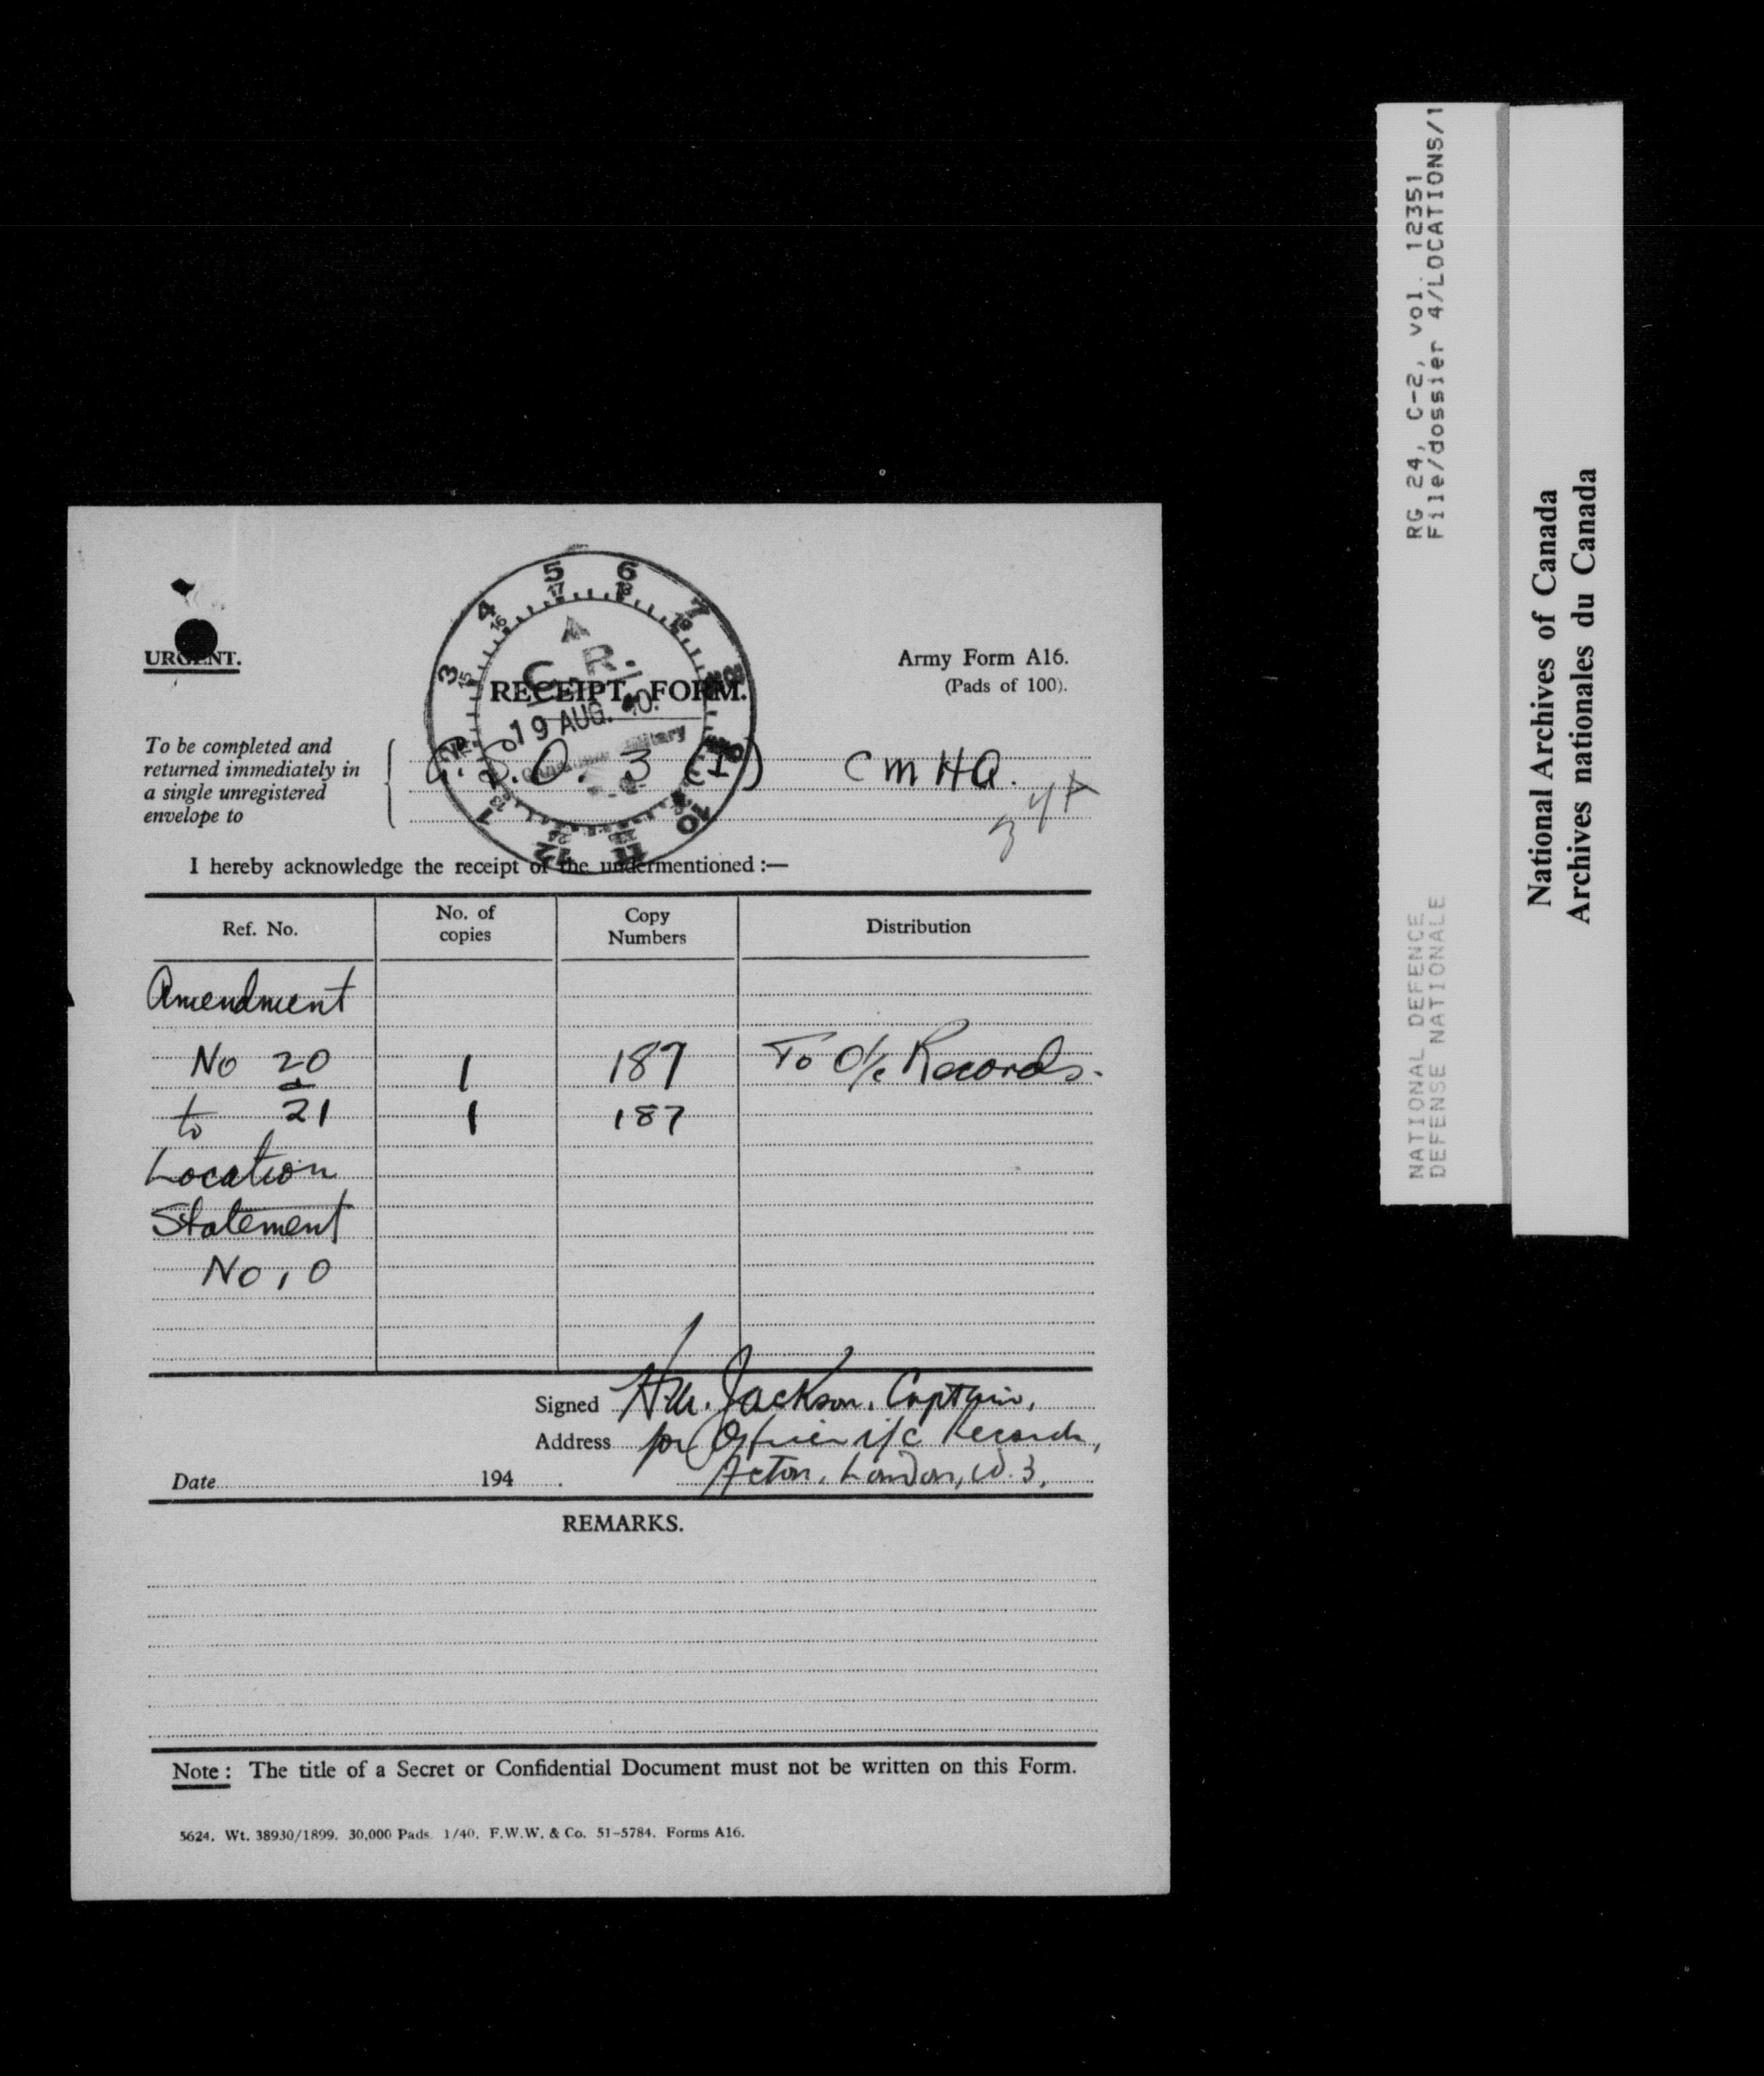 URGENT.
C.R.
19 AUG. 40.
RECEIPT FORM.
Army Form A16.
(Pads of 100).
To be completed and
returned immediately in
a single unregistered
envelope to
G.S.O. 3 (I) CMHQ.
I hereby acknowledge the receipt of the undermentioned :—
Ref. No. No. of copies Copy Numbers Distribution
Amendment
No 20 1 187 To O/c Records.
to 21 1 187
Location
Statement
No 10
Signed Jackson, Captain,
Address for Officer i/c Records,
Date 194 . Acton, London, W.3.
REMARKS.
Note : The title of a Secret or Confidential Document must not be written on this Form.
5624. Wt. 38930/1899. 30,000 Pads. 1/40. F.W.W. & Co. 51-5784. Forms A16.
RG 24, C-2, vol. 12351
File/dossier 4/LOCATIONS/1
NATIONAL DEFENCE
DEFENSE NATIONALE
National Archives of Canada
Archives nationales du Canada